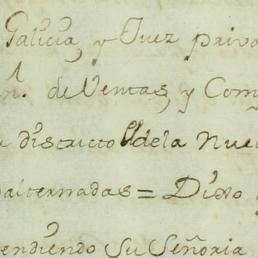 Galicia, y Juez priva
de Ventas, y Com
distrcto dela Nue
alternadas = Dixo
endiendo Su Señoria